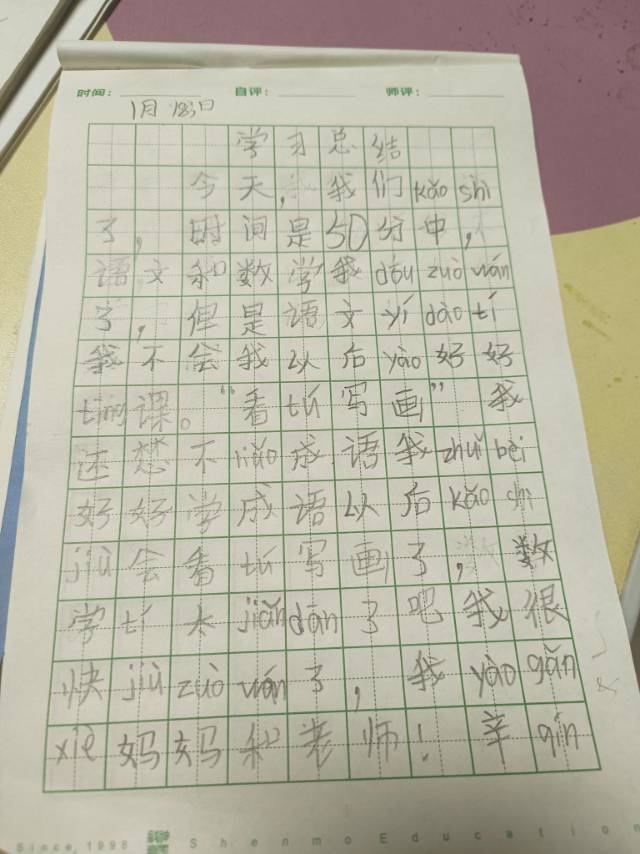 时间： 自评： 师评：
1月 日
学习总结
今天，我们kǎo shì
了，时间是50分中，
语文和数学我dōu zuò wán
了，但是语文yí dào tí
我不会我以后yào好好
tīng课。“看tú写画”我
还想不liǎo成语我zhǔi bèi
好好学成语以后kǎo shì
jiù会看tú写画了，数
学tí太jiǎn dān了吧我很
快jiù zuò wán了，我yào gǎn
xiè妈妈和老师！辛qín
Since,1998 Shenmo Education